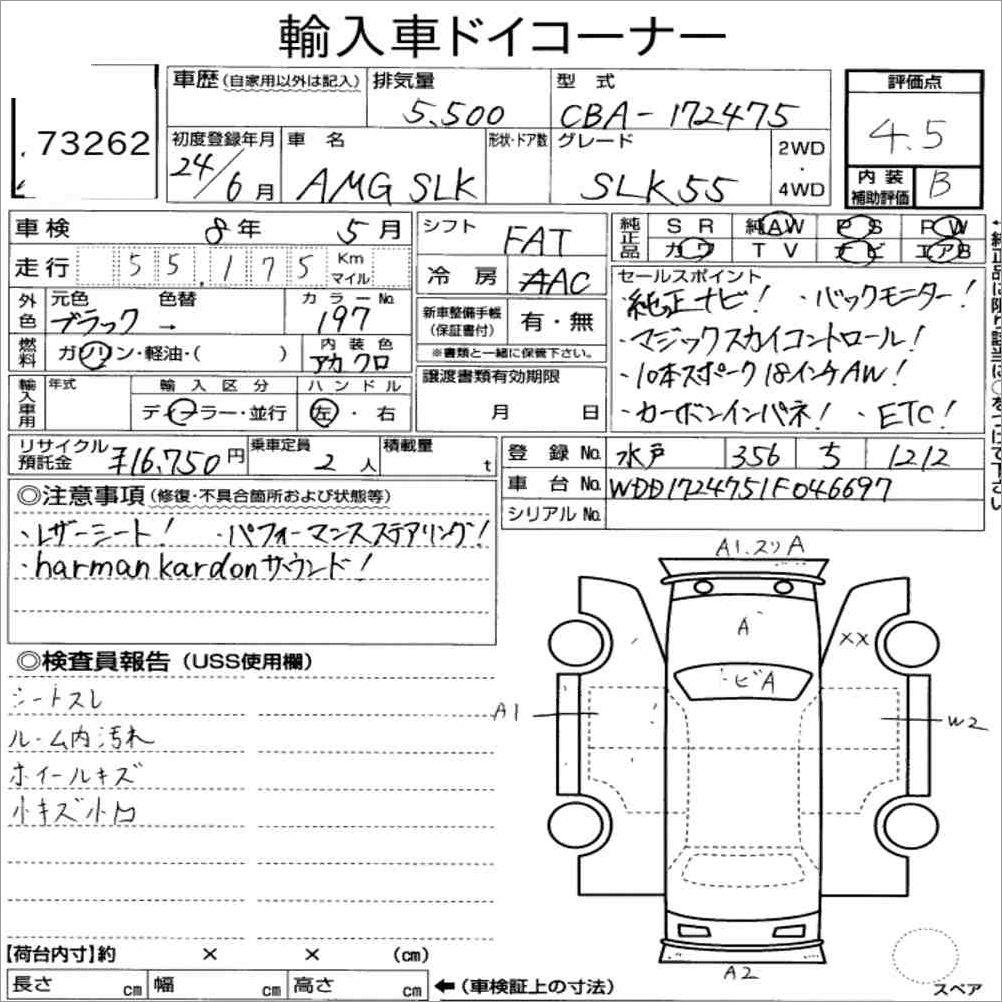 輸入車ドイコーナー
73262
車歴(自家用以外は記入) 排気量 5,500 型式 CBA-172475 評価点 4.5
初度登録年月 24/6月 車名 AMG SLK 形状・ドア数 グレード SLK55 2WD・4WD 内装補助評価 B
車検 8年 5月 シフト FAT 純正品 SR 純AW PS PW
走行 55,175 Km マイル 冷房 AAC カワ TV ナビ エアB
外色 元色 ブラック → 色替 カラーNo. 197 新車整備手帳(保証書付) 有・無
セールスポイント
・純正ナビ! ・バックモニター!
・マジックスカイコントロール!
・10本スポーク18インチAW!
・カーボンインパネ! ・ETC!
燃料 ガソリン・軽油・( ) 内装色 アカクロ ※書類と一緒に保管下さい。
輸入車用 年式 輸入区分 ディーラー・並行 ハンドル 左・右 譲渡書類有効期限 月 日
リサイクル預託金 ¥16,750円 乗車定員 2人 積載量 t 登録No. 水戸 356 ち 1212
車台No. WDD1724751F046697
シリアルNo.
◎注意事項(修復・不具合箇所および状態等)
・レザーシート! ・パフォーマンスステアリング!
・harman kardonサウンド!
◎検査員報告(USS使用欄)
シートスレ
ルーム内汚れ
ホイールキズ
小キズ小凹
A1.スリA
A
XX
トビA
A1
W2
A2
スペア
【荷台内寸】約 × × (cm)
長さ cm 幅 cm 高さ cm ←(車検証上の寸法)